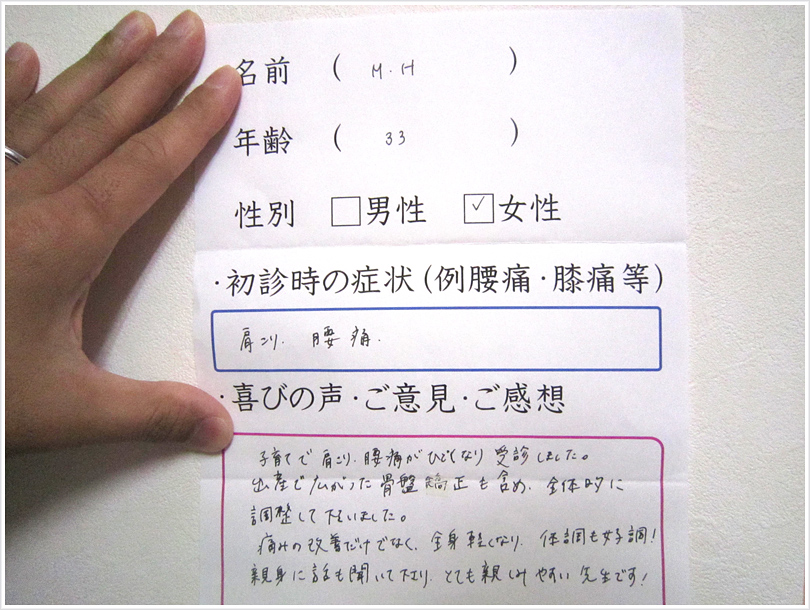 名前 ( M.H )
年齢 ( 33 )
性別 □男性 ☑女性
・初診時の症状(例腰痛・膝痛等)
肩こり. 腰痛.
・喜びの声・ご意見・ご感想
子育てで肩こり、腰痛がひどくなり受診しました。
出産で広がった骨盤矯正も含め、全体的に
調整して下いました。
痛みの改善だけでなく、全身軽くなり、体調も好調!
親身に話も聞いて下さり、とても親しみやすい先生です!